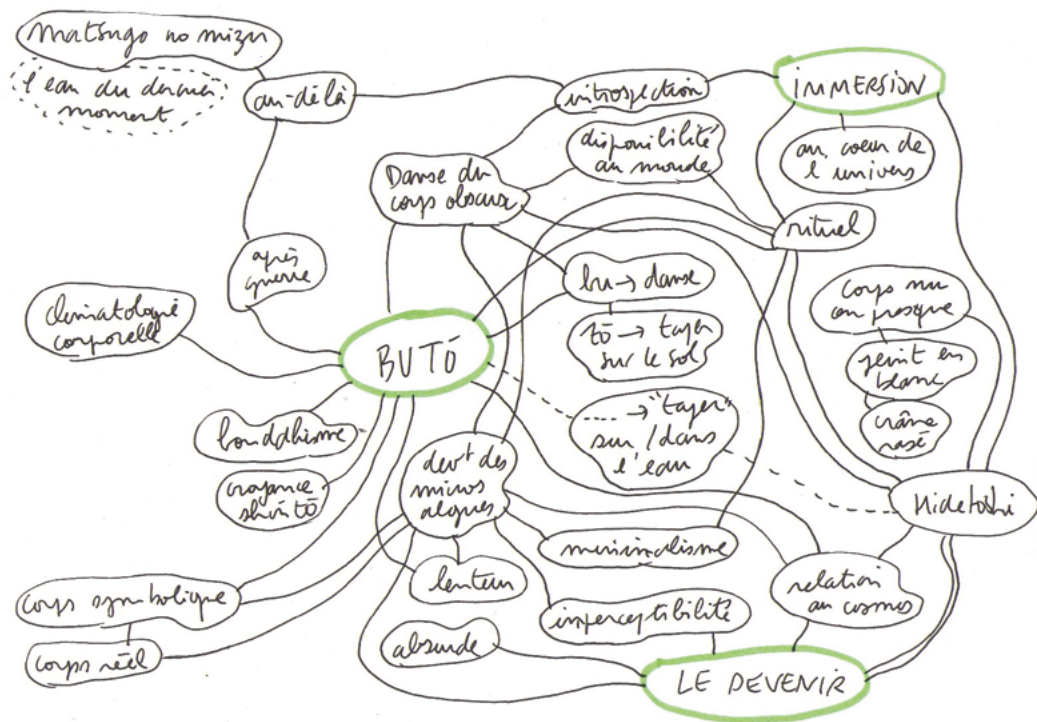 matsugo no mizu
l'eau du dernier
moment
au-délà
introspection
IMMERSION
disponibilité
au monde
au coeur de
l'univers
Danse du
corps obscur
rituel
après
guerre
bu → danse
tō → taper
sur le sol
corps nu
ou presque
peint en
blanc
crâne
rasé
climatologie
corporelle
BUTŌ
→ "taper"
sur / dans
l'eau
bouddhisme
croyance
shintō
devt des
micros
algues
Hidetoshi
minimalisme
lenteur
relation
au cosmos
corps symbolique
imperceptibilité
corps réel
absurde
LE DEVENIR